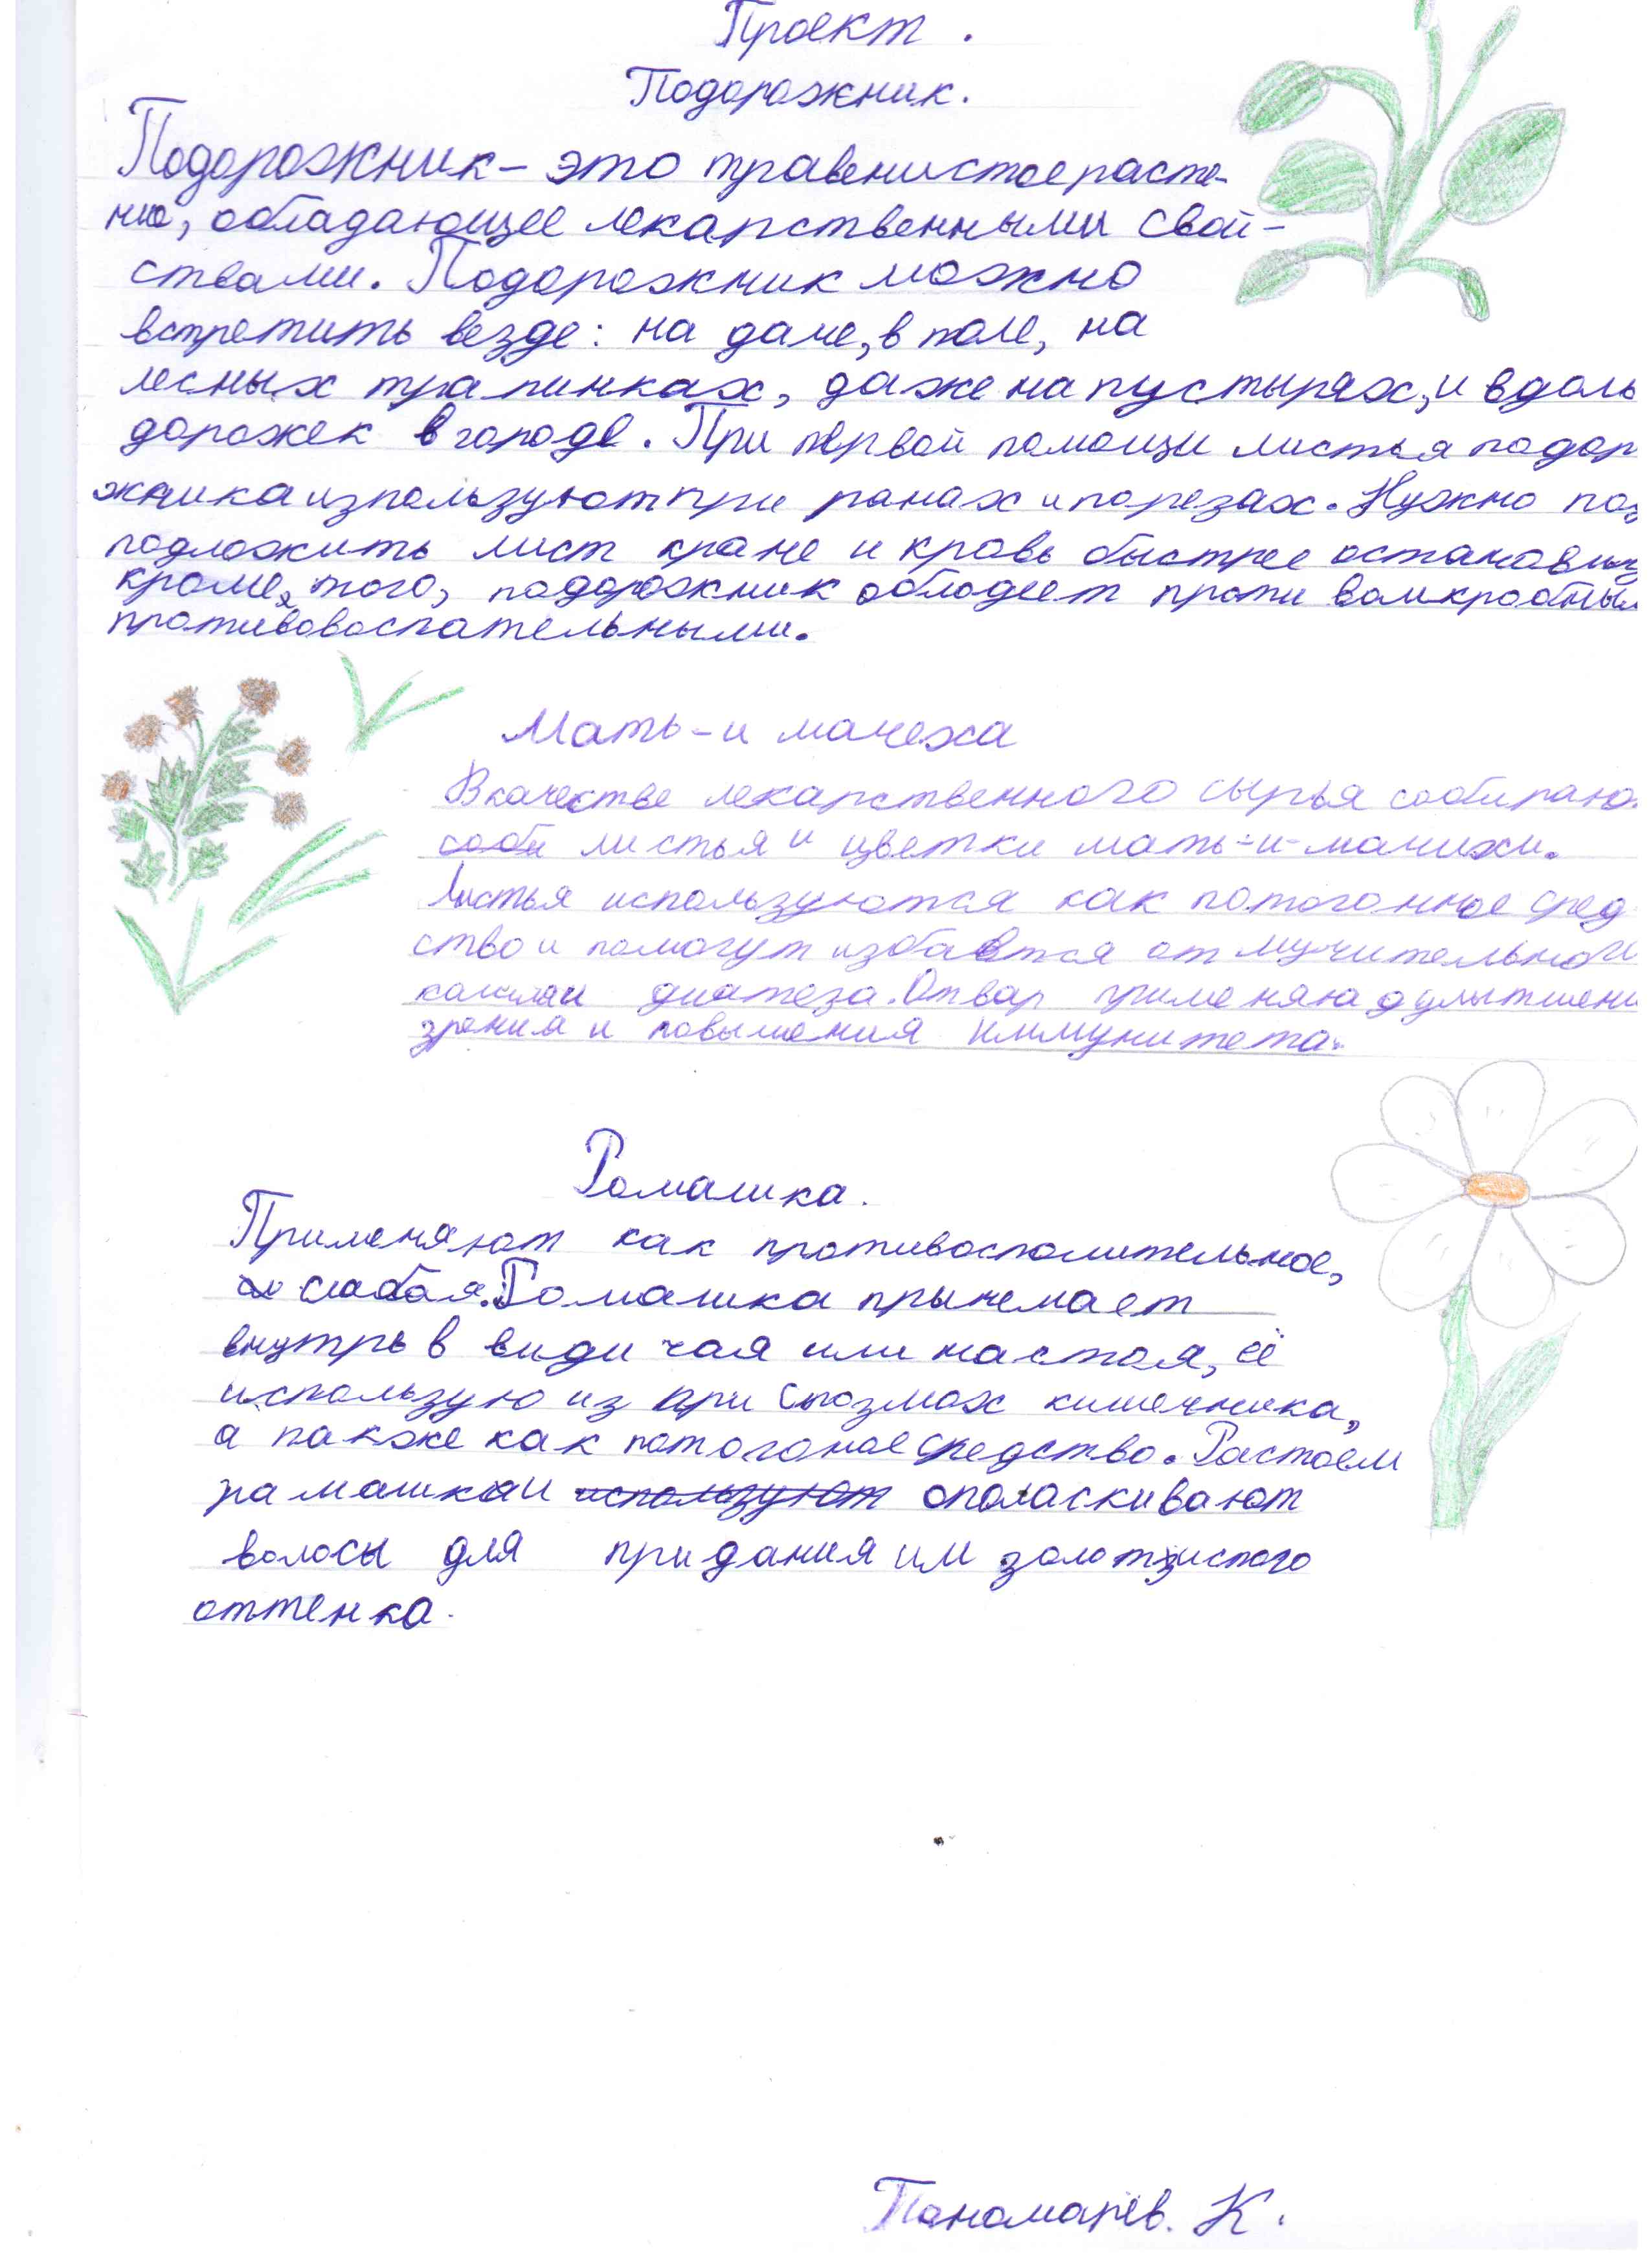 Проект.
Подорожник.
Подорожник - это травенистое расте-
ние, обладающее лекарственными свой-
ствами. Подорожник можно
встретить везде: на даче, в поле, на
лесных тропинках, даже на пустырях, и вдоль
дорожек в городе. При первой помощи листья подор
жника изпользуют при ранах и порезах. Нужно
подложить лист к ране и кровь быстрее
кроме, того, подорожник обладеет проти вомикробным
противовоспательными.
Мать-и мачеха
В качестве лекарственного сырья сообираю
сооби листья и цветки мать-и-мачихи.
Листья используются как потогонное сред
ство и помогут избавтся от мучительного
кашляи диатеза. Отвар применяю
зрения и повышения иммунитета.
Ромашка.
Применяют как противосполительное,
слабая. Ромашка прынемает
внутрь в види чая или настоя, её
использую из при спазмах кишечника,
а также как потогоное средство. Растоем
ромашкаи используют ополаскивают
волосы для придания им золотзистого
оттенка.
Пономарёв. К.